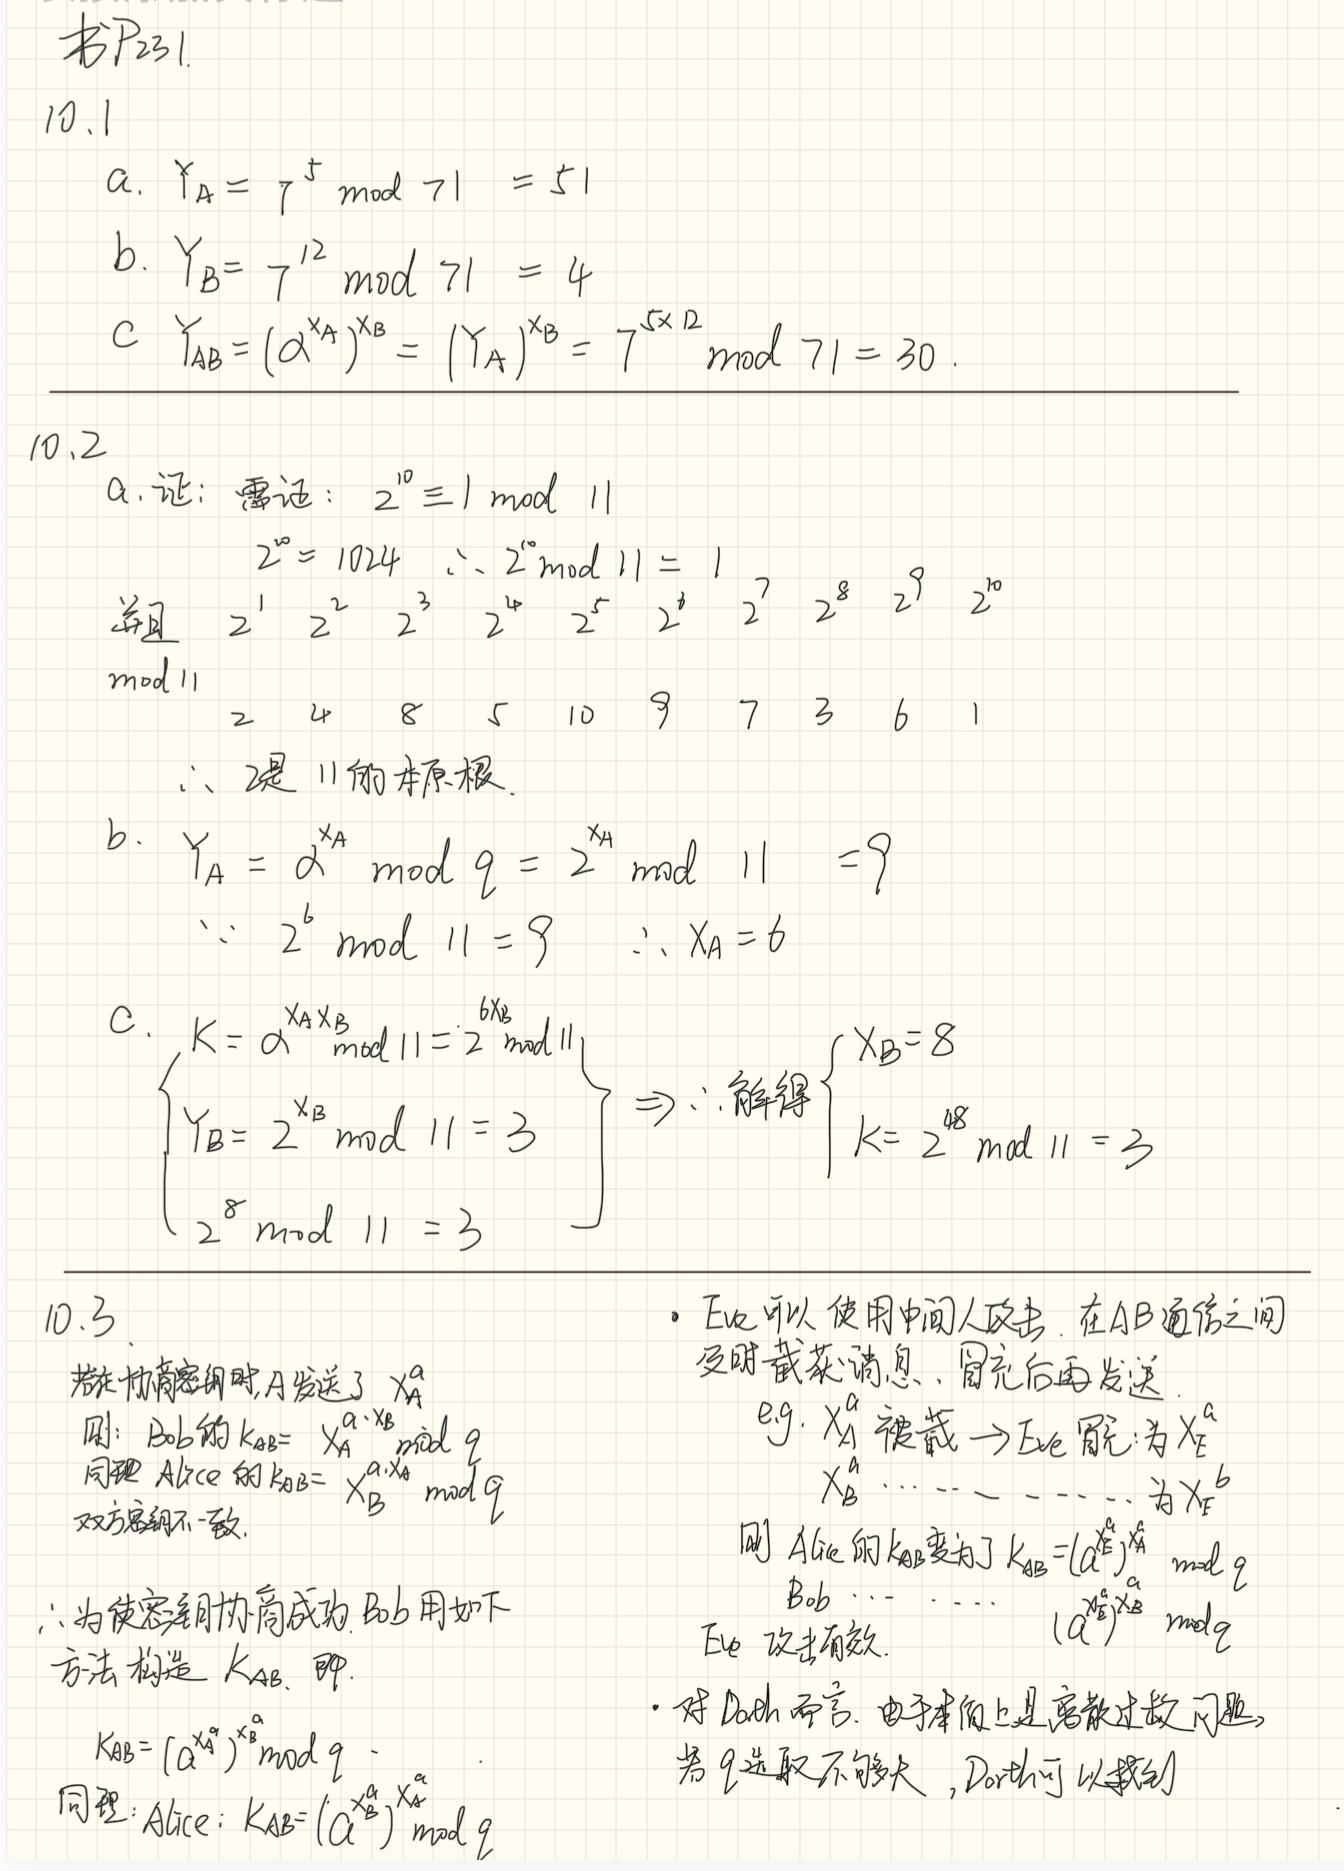 书P231.
10.1
a. Y_A = 7^5 mod 71 = 51
b. Y_B = 7^12 mod 71 = 4
c Y_AB = (α^{X_A})^{X_B} = (Y_A)^{X_B} = 7^{5×12} mod 71 = 30.
10.2
a. 证: 需证: 2^10 ≡ 1 mod 11
2^10 = 1024 ∴ 2^10 mod 11 = 1
并且 2^1 2^2 2^3 2^4 2^5 2^6 2^7 2^8 2^9 2^10
mod 11
2 4 8 5 10 9 7 3 6 1
∴ 2是 11的本原根.
b. Y_A = α^{X_A} mod q = 2^{X_A} mod 11 = 9
∵ 2^6 mod 11 = 9 ∴ X_A = 6
c. K = α^{X_A X_B} mod 11 = 2^{6X_B} mod 11
Y_B = 2^{X_B} mod 11 = 3
2^8 mod 11 = 3
⇒ ∴ 解得
X_B = 8
K = 2^48 mod 11 = 3
10.3
若在协商密钥时, A发送了 X_A^a
则: Bob的 K_AB = X_A^{a·X_B} mod q
同理 Alice 的 K_AB = X_B^{a·X_A} mod q
双方密钥不一致.
∴ 为使密钥协商成功, Bob 用如下
方法构造 K_AB. 即.
K_AB = (a^{X_A^a})^{X_B^a} mod q
同理: Alice: K_AB = (a^{X_B^a})^{X_A^a} mod q
· Eve 可以使用中间人攻击. 在AB通信之间
及时截获消息、冒充后再发送.
e.g. X_A^a 被截 → Eve 冒充: 为 X_E^a
X_B^a ............ 为 X_E^b
则 Alice 的 K_AB变为了 K_AB = (a^{X_E^a})^{X_A^a} mod q
Bob ... .... (a^{X_E^a})^{X_B^a} mod q
Eve 攻击有效.
· 对 Darth 而言. 由于本质上是离散对数问题,
若 q选取不够大, Darth可以找到